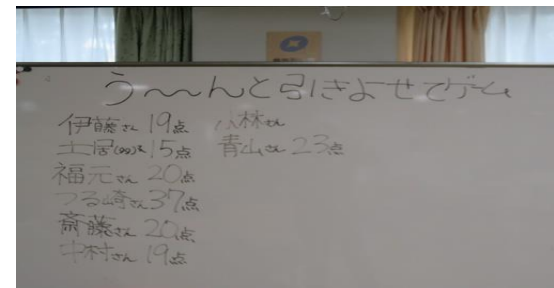 う〜〜んと引きよせてゲーム
伊藤さん 19点
土居(00)さん 15点
福元さん 20点
つる崎さん 37点
斎藤さん 20点
中村さん 19点
小林さん
青山さん 23点